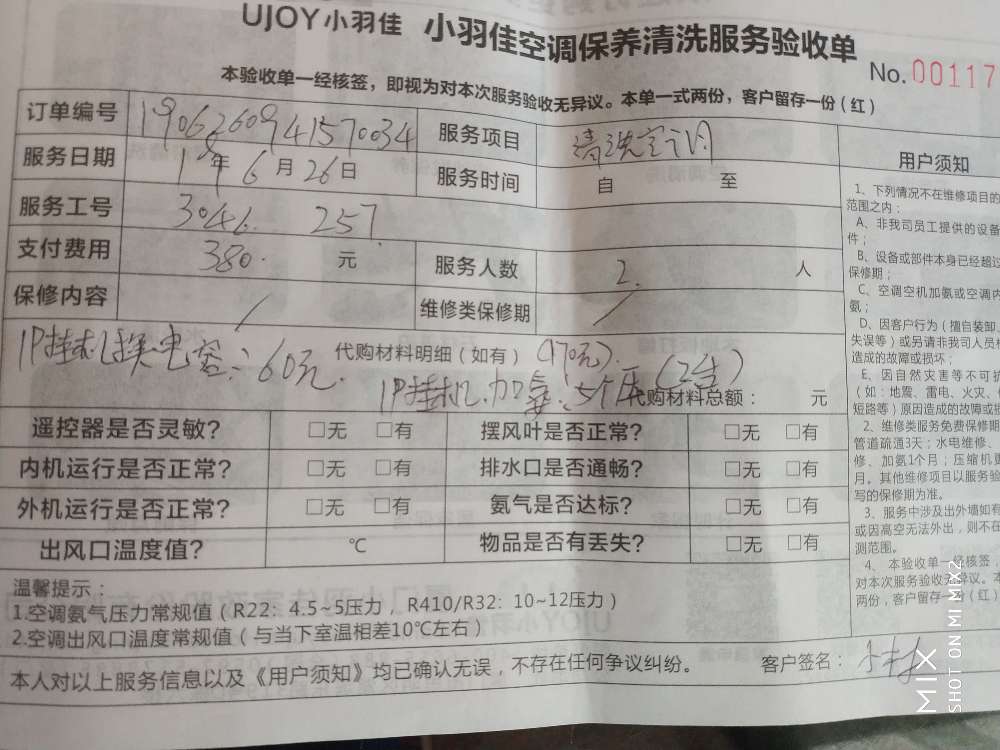 UJOY小羽佳 小羽佳空调保养清洗服务验收单
No. 00117
本验收单一经核签，即视为对本次服务验收无异议。本单一式两份，客户留存一份（红）
订单编号 1906260941570034 服务项目 清洗空调
服务日期 19年6月26日 服务时间 自 至
服务工号 3046. 257
支付费用 380. 元 服务人数 2. 人
保修内容 / 维修类保修期 /
1P挂机换电容：60元. 代购材料明细（如有）（170元）.
1P挂机.加氨：5个压（2台） 代购材料总额： 元
遥控器是否灵敏? □无 □有 摆风叶是否正常? □无 □有
内机运行是否正常? □无 □有 排水口是否通畅? □无 □有
外机运行是否正常? □无 □有 氨气是否达标? □无 □有
出风口温度值? ℃ 物品是否有丢失? □无 □有
温馨提示：
1.空调氨气压力常规值（R22：4.5~5压力，R410/R32：10~12压力）
2.空调出风口温度常规值（与当下室温相差10℃左右）
本人对以上服务信息以及《用户须知》均已确认无误，不存在任何争议纠纷。 客户签名：
用户须知
1、下列情况不在维修项目的
范围之内：
A、非我司员工提供的设备
件；
B、设备或部件本身已经超过
保修期；
C、空调空机加氨或空调内
氨；
D、因客户行为（擅自装卸、
失误等）或另请非我司人员
造成的故障或损坏；
E、因自然灾害等不可抗
（如：地震、雷电、火灾、
短路等）原因造成的故障或损
2、维修类服务免费保修期
管道疏通3天；水电维修、
修、加氨1个月；压缩机更
月。其他维修项目以服务验
写的保修期为准。
3、服务中涉及出外墙如有
或因高空无法外出，则不在
测范围。
4、本验收单一经核签，
对本次服务验收无异议。本
两份，客户留存一份（红）
MIX
SHOT ON MI MIX2